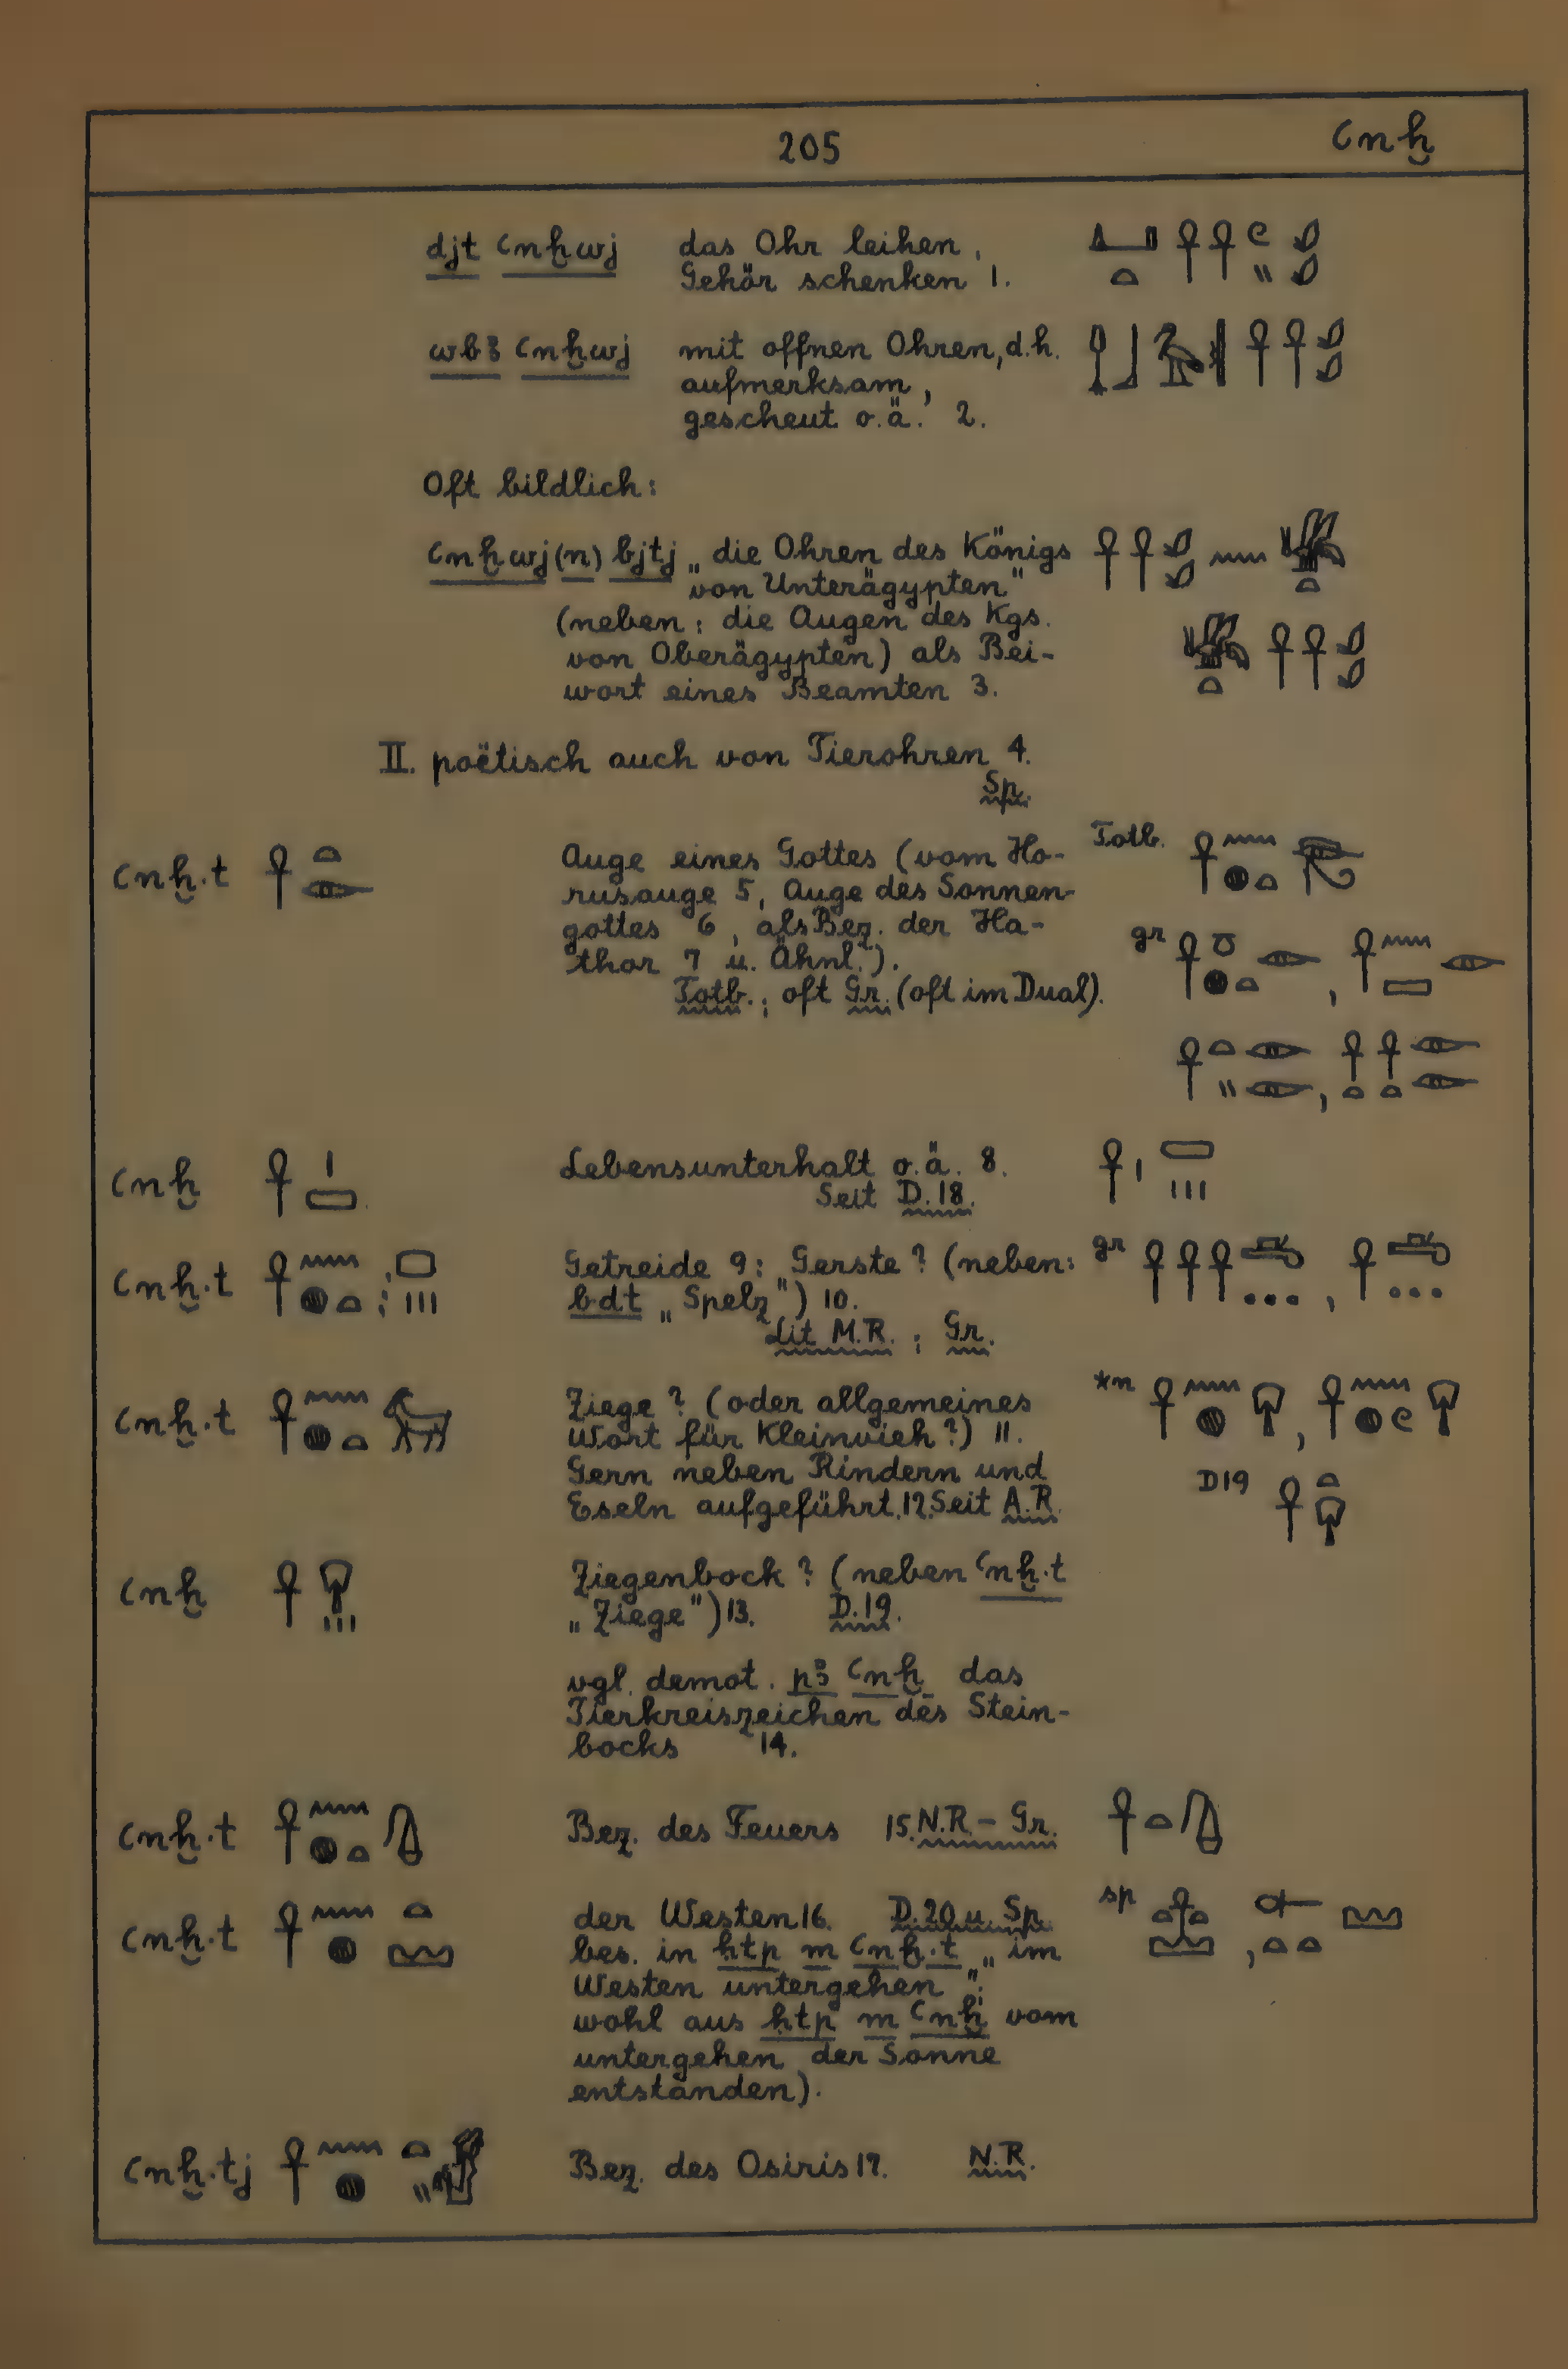 205 ꜥnḫ
djt ꜥnḫwj das Ohr leihen,
Gehör schenken 1.
wbꜣ ꜥnḫwj mit offnen Ohren, d.h.
aufmerksam,
gescheut o.ä. 2.
Oft bildlich:
ꜥnḫwj (n) bjtj „die Ohren des Königs
von Unterägypten"
(neben: die Augen des Kgs.
von Oberägypten) als Bei-
wort eines Beamten 3.
II. poëtisch auch von Tierohren 4.
Sp.
ꜥnḫ.t Auge eines Gottes (vom Ho- Totb.
rusauge 5, Auge des Sonnen-
gottes 6, als Bez. der Ha- gr
thor 7 u. Ähnl.).
Totb.; oft Gr. (oft im Dual).
ꜥnḫ Lebensunterhalt o.ä. 8.
Seit D.18.
ꜥnḫ.t Getreide 9: Gerste? (neben: gr
bdt „Spelz") 10.
Lit M.R.; Gr.
ꜥnḫ.t Ziege? (oder allgemeines *n
Wort für Kleinvieh?) 11.
Gern neben Rindern und D19
Eseln aufgeführt.12. Seit A.R.
ꜥnḫ Ziegenbock? (neben ꜥnḫ.t
„Ziege") 13. D.19.
vgl. demot. pꜣ ꜥnḫ das
Tierkreiszeichen des Stein-
bocks 14.
ꜥnḫ.t Bez. des Feuers 15. N.R.–Gr.
ꜥnḫ.t der Westen 16. D.20 u. Sp. sp
bes. in ḥtp m ꜥnḫ.t „im
Westen untergehen";
wohl aus ḥtp m ꜥnḫ vom
untergehen der Sonne
entstanden).
ꜥnḫ.tj Bez. des Osiris 17. N.R.